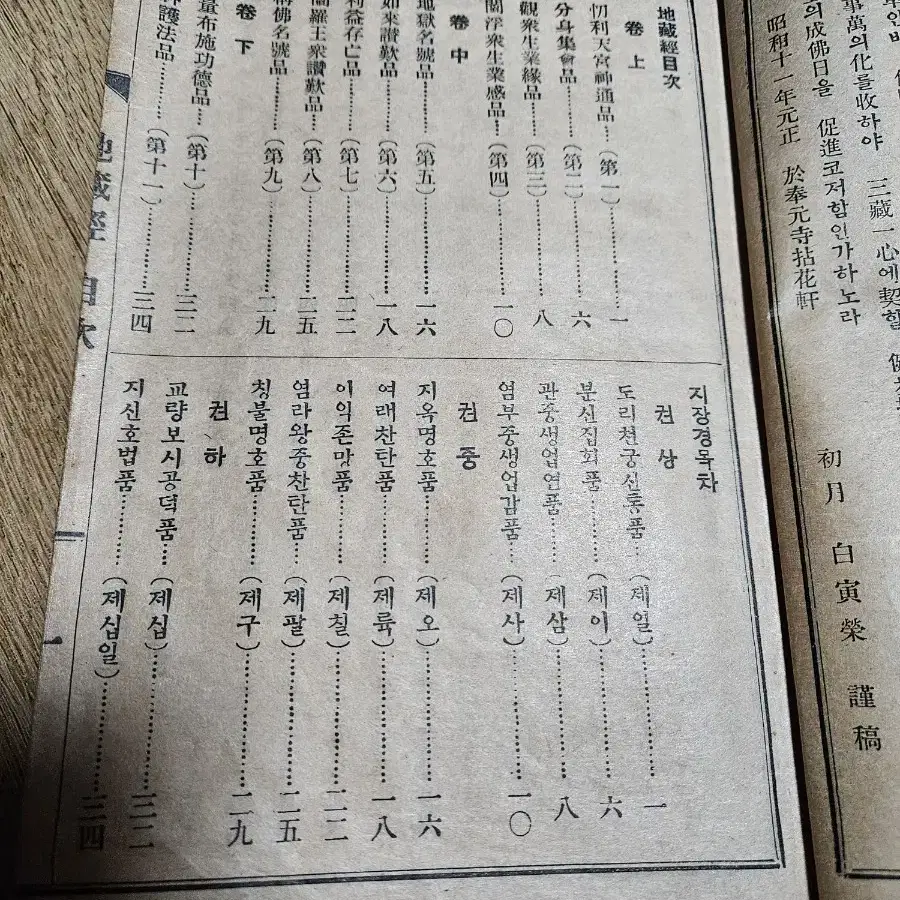 事萬의化를收하야 三藏一心에契할
의成佛日을 促進코저함인가하노라
昭和十一年元正 於奉元寺拈花軒
初月 白寅榮 謹稿
地藏經目次
卷上
忉利天宮神通品…(第一)…一
分身集會品…(第二)…六
觀衆生業緣品…(第三)…八
閻浮衆生業感品…(第四)…一〇
卷中
地獄名號品…(第五)…一六
如來讚歎品…(第六)…一八
利益存亡品…(第七)…二二
閻羅王衆讚歎品…(第八)…二五
稱佛名號品…(第九)…二九
卷下
量布施功德品…(第十)…三二
護法品…(第十一)…三四
지장경목차
권상
도리천궁신통품…(제일)…一
분신집회품…(제이)…六
관중생업연품…(제삼)…八
염부중생업감품…(제사)…一〇
권중
지옥명호품…(제오)…一六
여래찬탄품…(제륙)…一八
이익존망품…(제칠)…二二
염라왕중찬탄품…(제팔)…二五
칭불명호품…(제구)…二九
권하
교량보시공덕품…(제십)…三二
지신호법품…(제십일)…三四
地藏經 目次 一